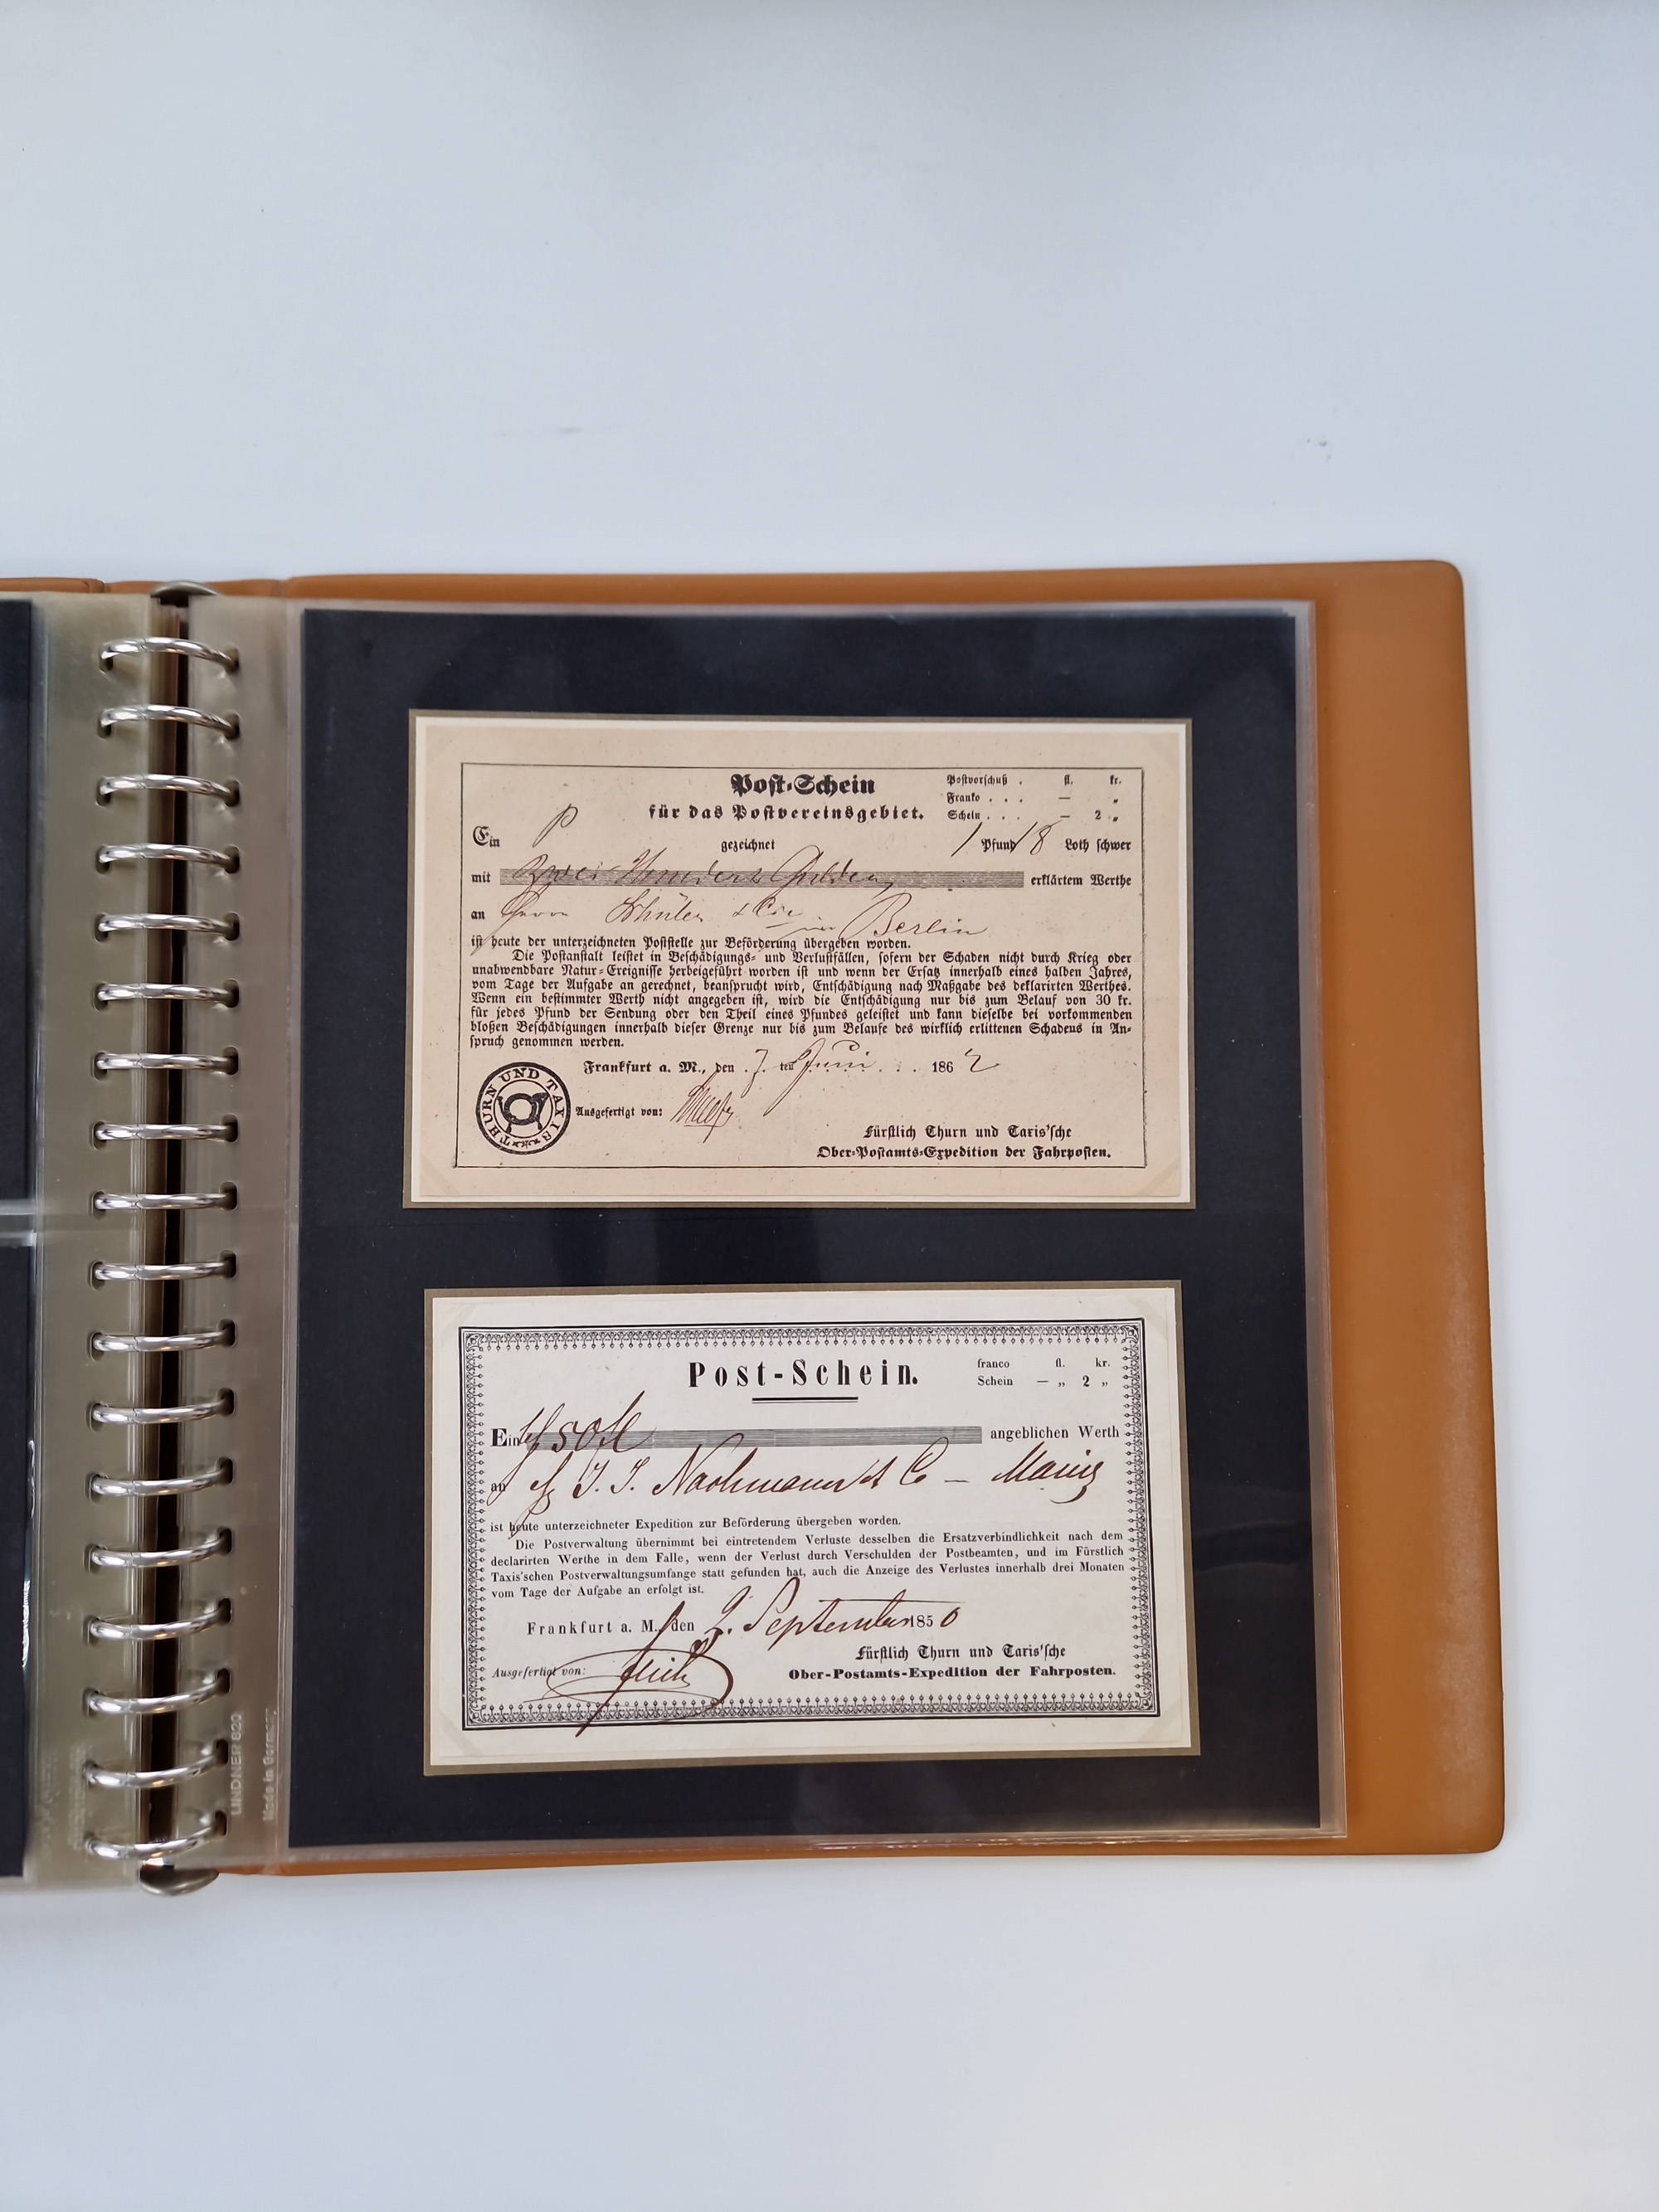 Post-Schein
für das Postvereinsgebiet.
Postvorschuß . fl. kr.
Franko . . . — „
Schein . . . — 2 „
Ein P gezeichnet 1 Pfund 18 Loth schwer
mit Zwei Hundert Gulden erklärtem Werthe
an Herrn & Cie Berlin
ist heute der unterzeichneten Poststelle zur Beförderung übergeben worden.
Die Postanstalt leistet in Beschädigungs- und Verlustfällen, sofern der Schaden nicht durch Krieg oder
unabwendbare Natur-Ereignisse herbeigeführt worden ist und wenn der Ersatz innerhalb eines halben Jahres,
vom Tage der Aufgabe an gerechnet, beansprucht wird, Entschädigung nach Maßgabe des deklarirten Werthes.
Wenn ein bestimmter Werth nicht angegeben ist, wird die Entschädigung nur bis zum Belauf von 30 kr.
für jedes Pfund der Sendung oder den Theil eines Pfundes geleistet und kann dieselbe bei vorkommenden
bloßen Beschädigungen innerhalb dieser Grenze nur bis zum Belaufe des wirklich erlittenen Schadens in An-
spruch genommen werden.
Frankfurt a. M., den 7. ten Juni . . 1862
THURN UND TAXIS
Ausgefertigt von:
Fürstlich Thurn und Taxis'sche
Ober-Postamts-Expedition der Fahrposten.
Post-Schein.
franco fl. kr.
Schein — „ 2 „
Ein 50 fl angeblichen Werth
an J. J. Nachmann & Co — Mainz
ist heute unterzeichneter Expedition zur Beförderung übergeben worden.
Die Postverwaltung übernimmt bei eintretendem Verluste desselben die Ersatzverbindlichkeit nach dem
declarirten Werthe in dem Falle, wenn der Verlust durch Verschulden der Postbeamten, und im Fürstlich
Taxis'schen Postverwaltungsumfange statt gefunden hat, auch die Anzeige des Verlustes innerhalb drei Monaten
vom Tage der Aufgabe an erfolgt ist.
Frankfurt a. M., den 2. September 1850
Fürstlich Thurn und Taxis'sche
Ausgefertigt von:
Ober-Postamts-Expedition der Fahrposten.
LINDNER 820
Made in Germany